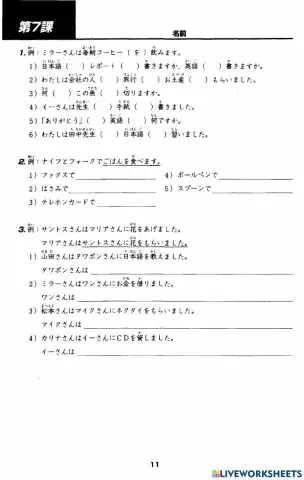 第7課
名前
1. 例：ミラーさんは毎朝コーヒー（を）飲みます。
1）日本語（　）レポート（　）書きますか、英語（　）書きますか。
2）わたしは会社の人（　）旅行（　）お土産（　）もらいました。
3）何（　）この魚（　）切りますか。
4）イーさんは先生（　）手紙（　）書きました。
5）「ありがとう」（　）英語（　）何ですか。
6）わたしは田中先生（　）日本語（　）習いました。
2. 例：ナイフとフォークでごはんを食べます。
1）ファクスで
4）ボールペンで
2）はさみで
5）スプーンで
3）テレホンカードで
3. 例：サントスさんはマリアさんに花をあげました。
マリアさんはサントスさんに花をもらいました。
1）山田さんはタワポンさんに日本語を教えました。
タワポンさんは
2）ミラーさんはワンさんにお金を借りました。
ワンさんは
3）松本さんはマイクさんにネクタイをもらいました。
マイクさんは
4）カリナさんはイーさんにCDを貸しました。
イーさんは
11
LIVEWORKSHEETS